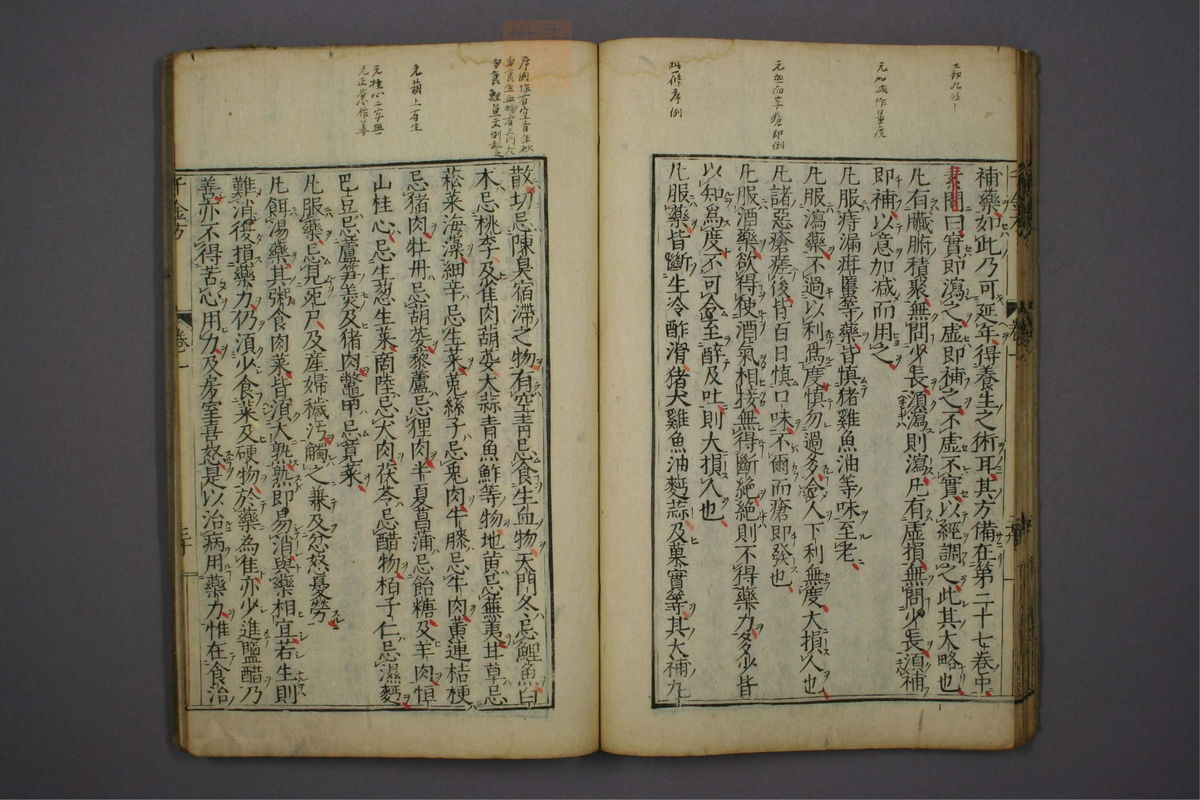 補藥如此乃可延年得養生之術耳其方備在第二十七卷中
素問曰實即瀉之虛即補之不虛不實以經調之此其大略也
凡有臟腑積聚無問少長須瀉則瀉凡有虛損無問少長須補
即補以意加减而用之
凡服痔漏疳䘌等藥皆慎猪雞魚油等味至老
凡服瀉藥不過以利爲度慎勿過多令人下利無度大損人也
凡諸惡瘡瘥後皆百日慎口味不爾而瘡即發也
凡服酒藥欲得使酒氣相接無得斷絶絶則不得藥力多少皆
以知爲度不可令至醉及吐則大損人也
凡服藥皆斷生冷酢滑猪犬雞魚油麪蒜及菓實等其大補丸
散切忌陳臭宿滯之物有空青忌食生血物天門冬忌鯉魚白
木忌桃李及雀肉葫荽大蒜青魚鮓等物地黄忌蕪荑甘草忌
菘菜海藻細辛忌生菜兎絲子忌兎肉牛膝忌牛肉黄連桔梗
忌猪肉牡丹忌葫荽藜蘆忌狸肉半夏菖蒲忌飴糖及羊肉恒
山桂心忌生葱生菜商陸忌犬肉茯苓忌醋物栢子仁忌濕麪
巴豆忌蘆笋羮及猪肉鼈甲忌莧菜
凡服藥忌見死尸及産婦穢汚觸之兼及忿怒憂勞
凡餌湯藥其粥食肉菜皆須大熟熟即易消與藥相宜若生則
難消復損藥力仍須少食菜及硬物於藥為佳亦少進鹽醋乃
善亦不得苦心用力及房室喜怒是以治病用藥力惟在食治
千金方
卷一
元加减作量度
元无而字瘡即倒
此條序例
元葫上有生
元桂心二字無